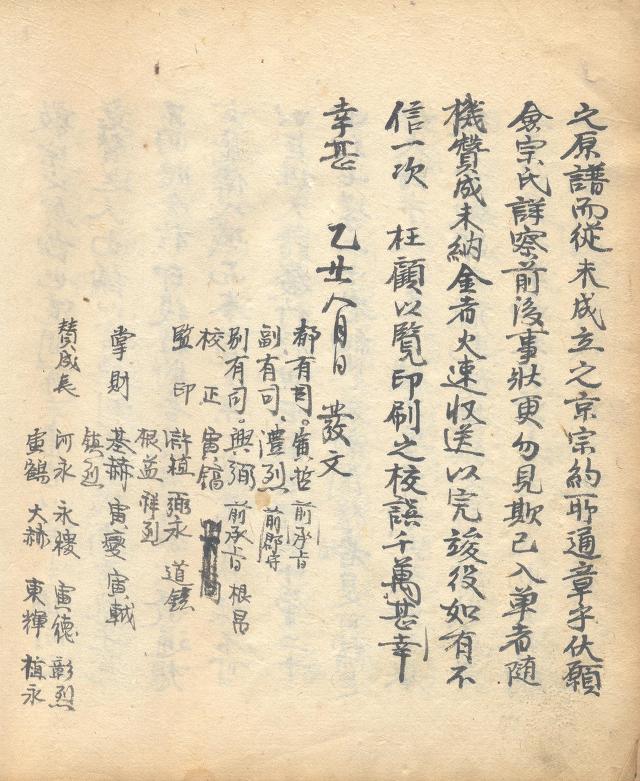 之原譜而從未成立之京宗約耶通章乎伏願
僉宗氏詳察前後事狀更勿見欺已入單者隨
機贊成未納金者火速收送以完竣役如有不
信一次 枉顧以覽印刷之校誤千萬甚幸
幸甚 乙丑八月日 發文
都有司 寅哲 前承旨
副有司 澧烈 前郡守
別有司 興弼 前承旨 根昂
校正 寅鎬
監印 澣植 弼永 道鎬
根益 祥烈
掌財 基赫 寅燮 寅軾
鎮烈
贊成長 河永 永稷 寅德 彰烈
寅鶴 大赫 東輝 植永